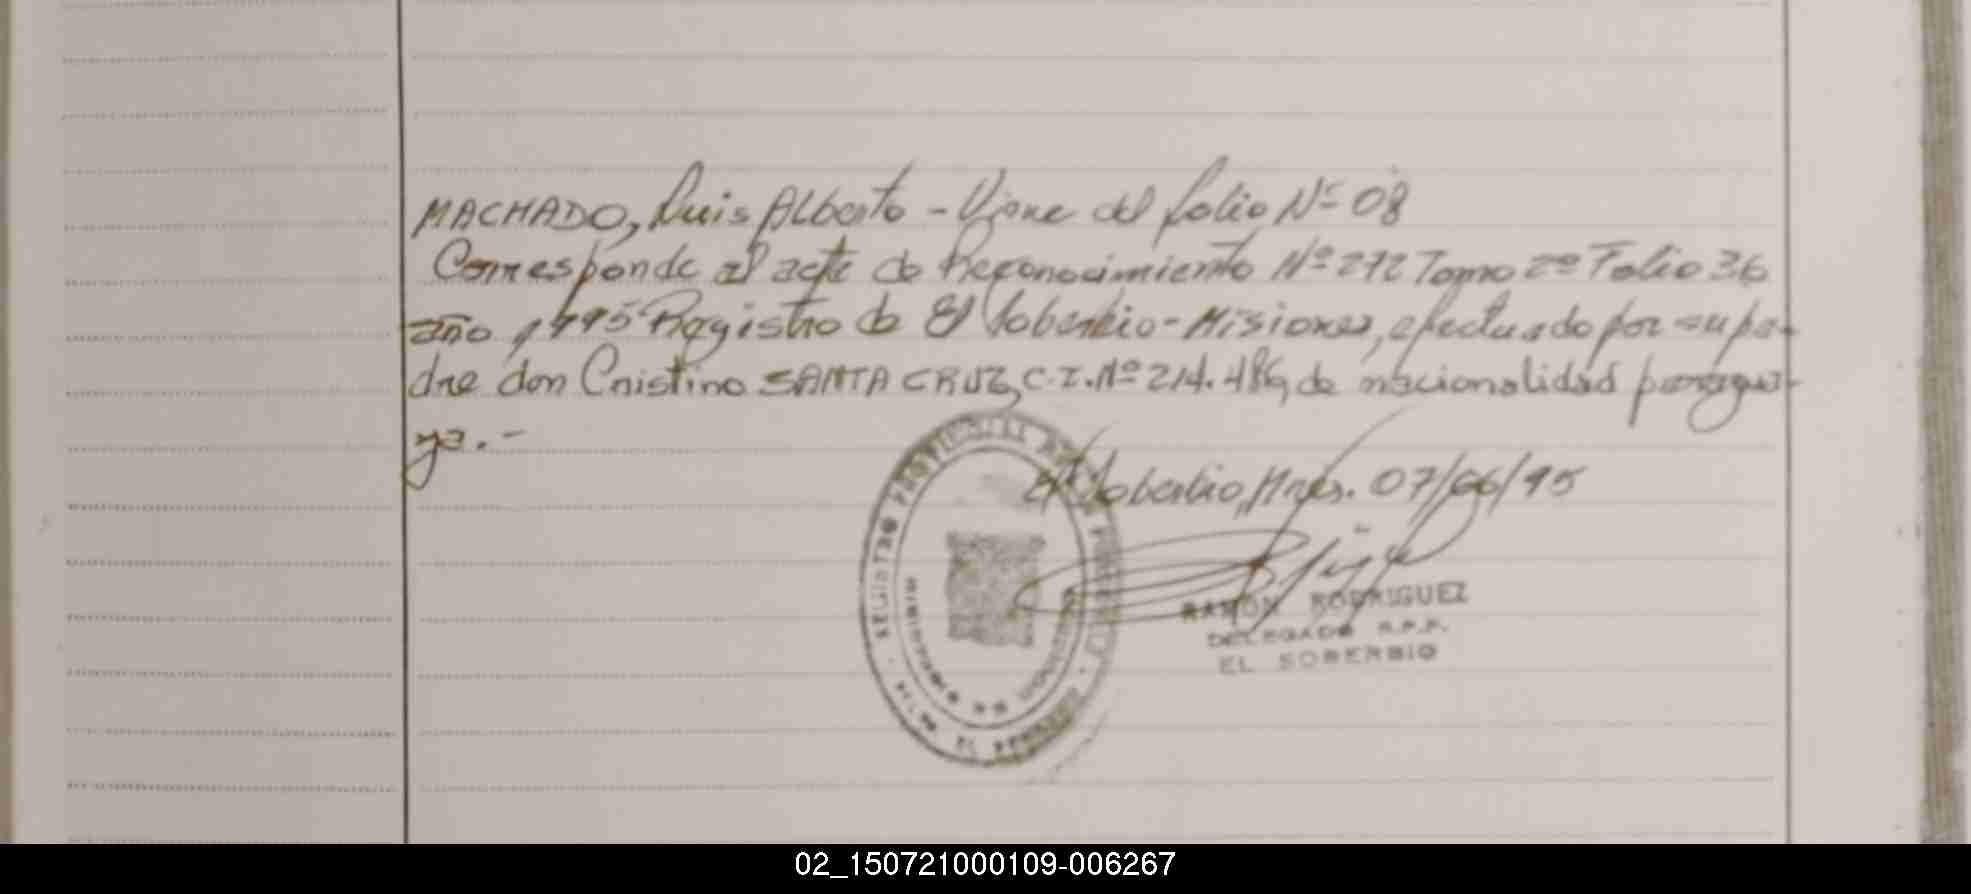 MACHADO, Luis Alberto - Viene del folio Nº 08
Corresponde al acta de Reconocimiento Nº 272 Tomo 2º Folio 36
año 1995 Registro de El Soberbio - Misiones, efectuado por su pa-
dre don Cristino SANTA CRUZ, C.I. Nº 214.486, de nacionalidad paragua-
ya. -
El Soberbio, Mnes. 07/06/95
RAMON RODRIGUEZ
DELEGADO R.P.P.
EL SOBERBIO
REGISTRO PROVINCIAL DE LAS PERSONAS
02_150721000109-006267